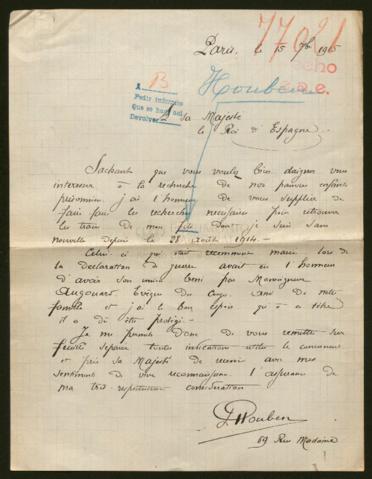 77021
Paris, le 15 1915
A 13
Houben
Petit informe
Que se
Devolver
A sa Majesté
le Roi d'Espagne
Sachant que vous voulez bien daigner vous
interesser à la recherche de nos pauvres enfants
prisonniers j'ai l'honneur de vous supplier de
faire faire les recherches necessaires pour retrouver
les traces de mon fils dont je suis sans
nouvelle depuis le 28 août 1914 -
Celui ci qui était recemment marié lors de
la declaration de guerre avait eu l'honneur
d'avoir son union beni par Monseigneur
Augouard Evêque du Congo ami de notre
famille et j'ai le bon espoir qu'à ce titre
il a dû être protégé -
Je me permets Donc de vous remettre sur
feuille séparée toutes indications utiles le concernant
et prie sa Majesté de reunir avec mes
sentiments de vive reconnaissance l'assurance de
ma très respectueuse consideration
Houben
69 Rue Madame